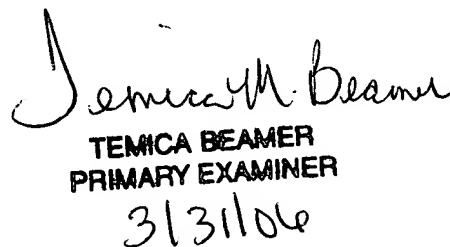 Temica M. Beamer
TEMICA BEAMER
PRIMARY EXAMINER
3/31/06